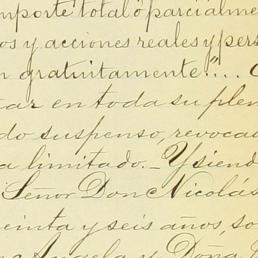 mporte total ó parcialme
os y acciones reales y per
n gratuitamente"....
ar en toda su plen
do suspenso, revoca
a limitado._Y siend
Señor Don Nicolás
einta y seis años, so
Angela y Doña